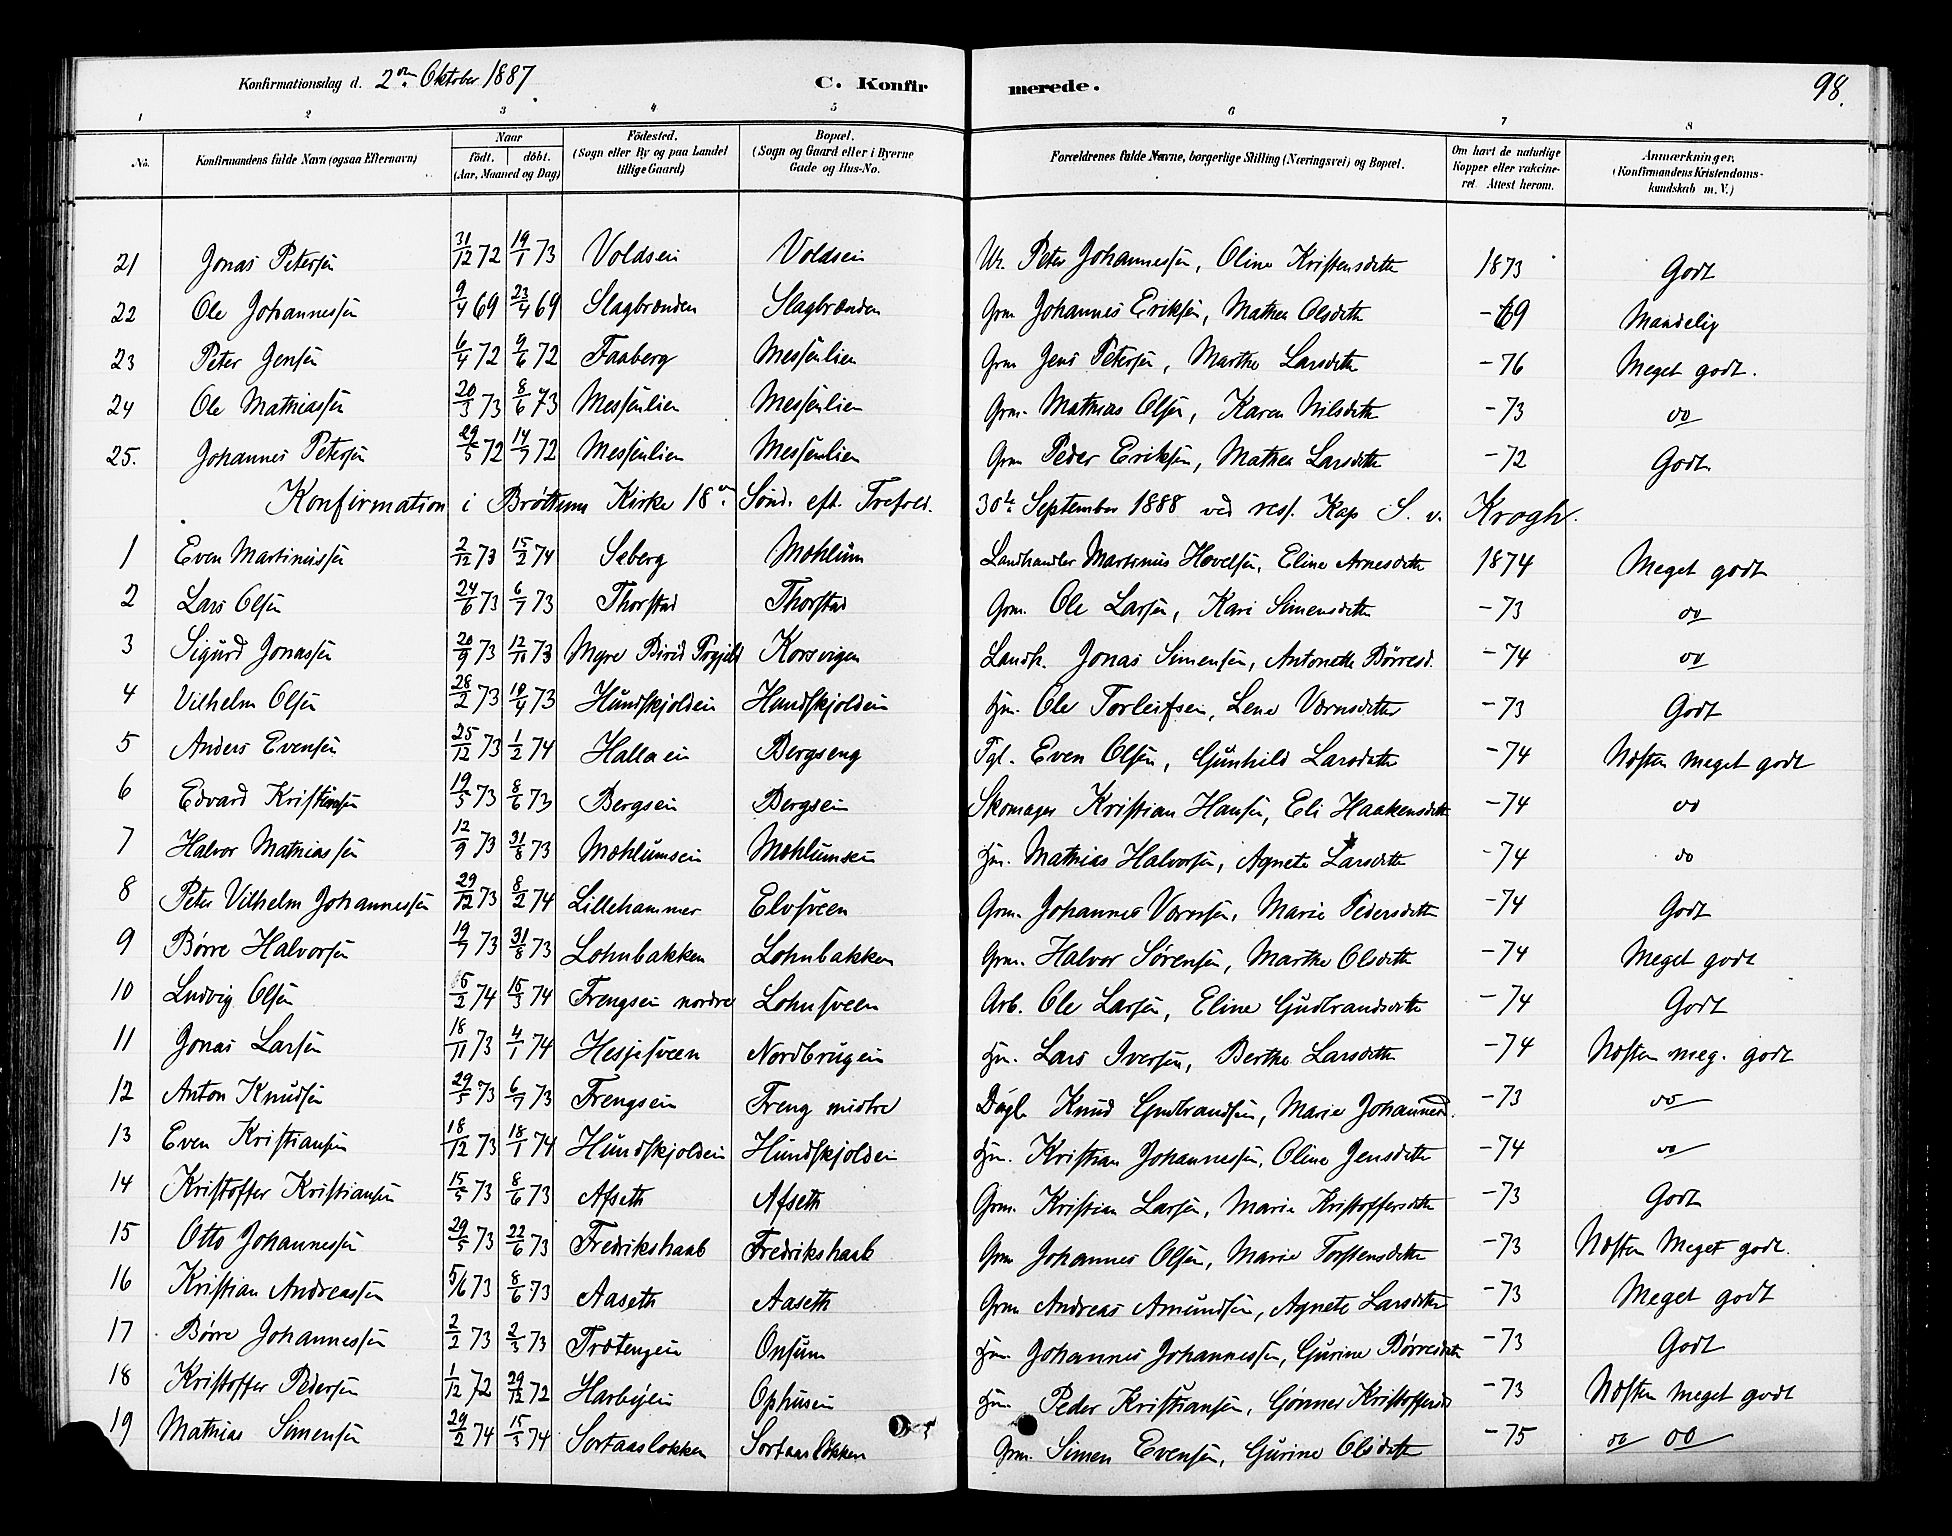 Konfirmationsdag d. 2den Oktober 1887 C. Konfirmerede. 98.
1 2 3 4 5 6 7 8
No. Konfirmandens fulde Navn (ogsaa Efternavn) Naar født. døbt. (Aar, Maaned og Dag) Födested. (Sogn eller By og paa Landet tillige Gaard) Bopæl. (Sogn og Gaard eller i Byerne Gade og Hus-No. Forældrenes fulde Navne, borgerlige Stilling (Næringsvei) og Bopæl. Om havt de naturlige Kopper eller vakcineret. Attest herom. Anmærkninger. (Konfirmandens Kristendomskundskab m.V.)
21 Jonas Petersen 31/12 72 19/1 73 Voldsein Voldsein Petes Johannessen, Oline Kristensdatter 1873 Godt
22 Ole Johannessen 9/4 69 23/4 69 Slagbrænden Slagbrænden Grm Johannes Eriksen, Mathea Olsdatter -69 Maadelig
23 Peter Jensen 6/4 72 9/6 72 Faaberg Messenlien Grm Jens Petersen, Marthe Larsdatter -76 Meget godt.
24 Ole Mathiassen 20/3 73 8/6 73 Messenlien Messenlien Grm. Mathias Olsen, Karen Nilsdatter -73 do
25. Johannes Petersen 29/5 72 14/7 72 Messenlien Messenlien Grm Peder Eriksen, Mathea Larsdatter -72 Godt
Konfirmation i Brøttum Kirke 18de Sönd. eft. Trefold. 30te September 1888 ved res. Kap S. v. Krogh.
1 Even Martinussen 2/12 73 15/2 74 Seberg Mohlum Landhandler Martinus Hovelsen, Eline Arnesdatter 1874 Meget godt
2 Lars Olsen 24/6 73 6/7 73 Thorstad Thorstad Grm. Ole Larsen, Kari Simensdatter -73 do
3 Sigurd Jonassen 20/9 73 12/10 73 Birid Korsvigen Landh. Jonas Simensen, Antonette Børresd. -74 do
4 Vilhelm Olsen 28/2 73 10/4 73 Hundskjoldein Hundskjoldein Hm. Ole Torleifsen, Lene Værnsdatter -73 Godt
5 Anders Evensen 25/12 73 1/2 74 Hallaein Bergseng Even Olsen, Gunhild Larsdatter -74 Næsten meget godt
6 Edvard Kristiansen 19/5 73 8/6 73 Bergsein Bergsein Skomager Kristian Hansen, Eli Haakensdatter -74 do
7 Halvor Mathiassen 12/9 73 31/8 73 Mohlumsein Mohlumsein Hm. Mathias Halvorsen, Agnete Larsdatter -74 do
8 Peter Vilhelm Johannessen 29/12 73 8/2 74 Lillehammer Elvsveen Grm. Johannes Værnsen, Marie Pedersdatter -74 Godt
9 Børre Halvorsen 19/7 73 31/8 73 Lohnbakken Lohnbakken Grm. Halvor Sørensen, Marthe Olsdatter -74 Meget godt
10 Ludvig Olsen 5/2 74 15/3 74 Frengsein nordre Lohnsveen Arb. Ole Larsen, Eline Gudbrandsdatter -74 Godt
11 Jonas Larsen 18/11 73 4/1 74 Hesjesveen Nordbrugein Hm. Lars Iversen, Berthe Larsdatter -74 Næsten meg. godt
12 Anton Knudsen 29/5 73 6/7 73 Frengsein Freng midtre Dagl. Knud Gudbrandsen, Marie Johannesd. -73 do
13 Even Kristiansen 18/12 73 18/1 74 Hundskjoldein Hundskjoldein Hm. Kristian Johannessen, Oline Jensdatter -74 do
14 Kristoffer Kristiansen 15/5 73 8/6 73 Afseth Afseth Grm. Kristian Larsen, Marie Kristoffersdatter -73 Godt
15 Otto Johannessen 29/5 73 22/6 73 Fredrikshaab Fredrikshaab Grm Johannes Olsen, Marie Torstensdatter -73 Næsten Meget godt.
16 Kristian Andreassen 5/6 73 8/6 73 Aaseth Aaseth Grm Andreas Amundsen, Agnete Larsdatter -73 Meget godt
17 Børre Johannessen 2/2 73 2/3 73 Trætengein Onsum Hm. Johannes Johannessen, Gurine Børresdatter -73 Godt
18 Kristoffer Pedersen 1/12 72 29/12 72 Ophusein Hm Peder Kristiansen, Kristoffersd. -73 Næsten meget godt
19 Mathias Simensen 29/2 74 15/3 74 Sortaasløkken Sortaasløkken Grm. Simen Evensen, Gurine Olsdatter -75 do do